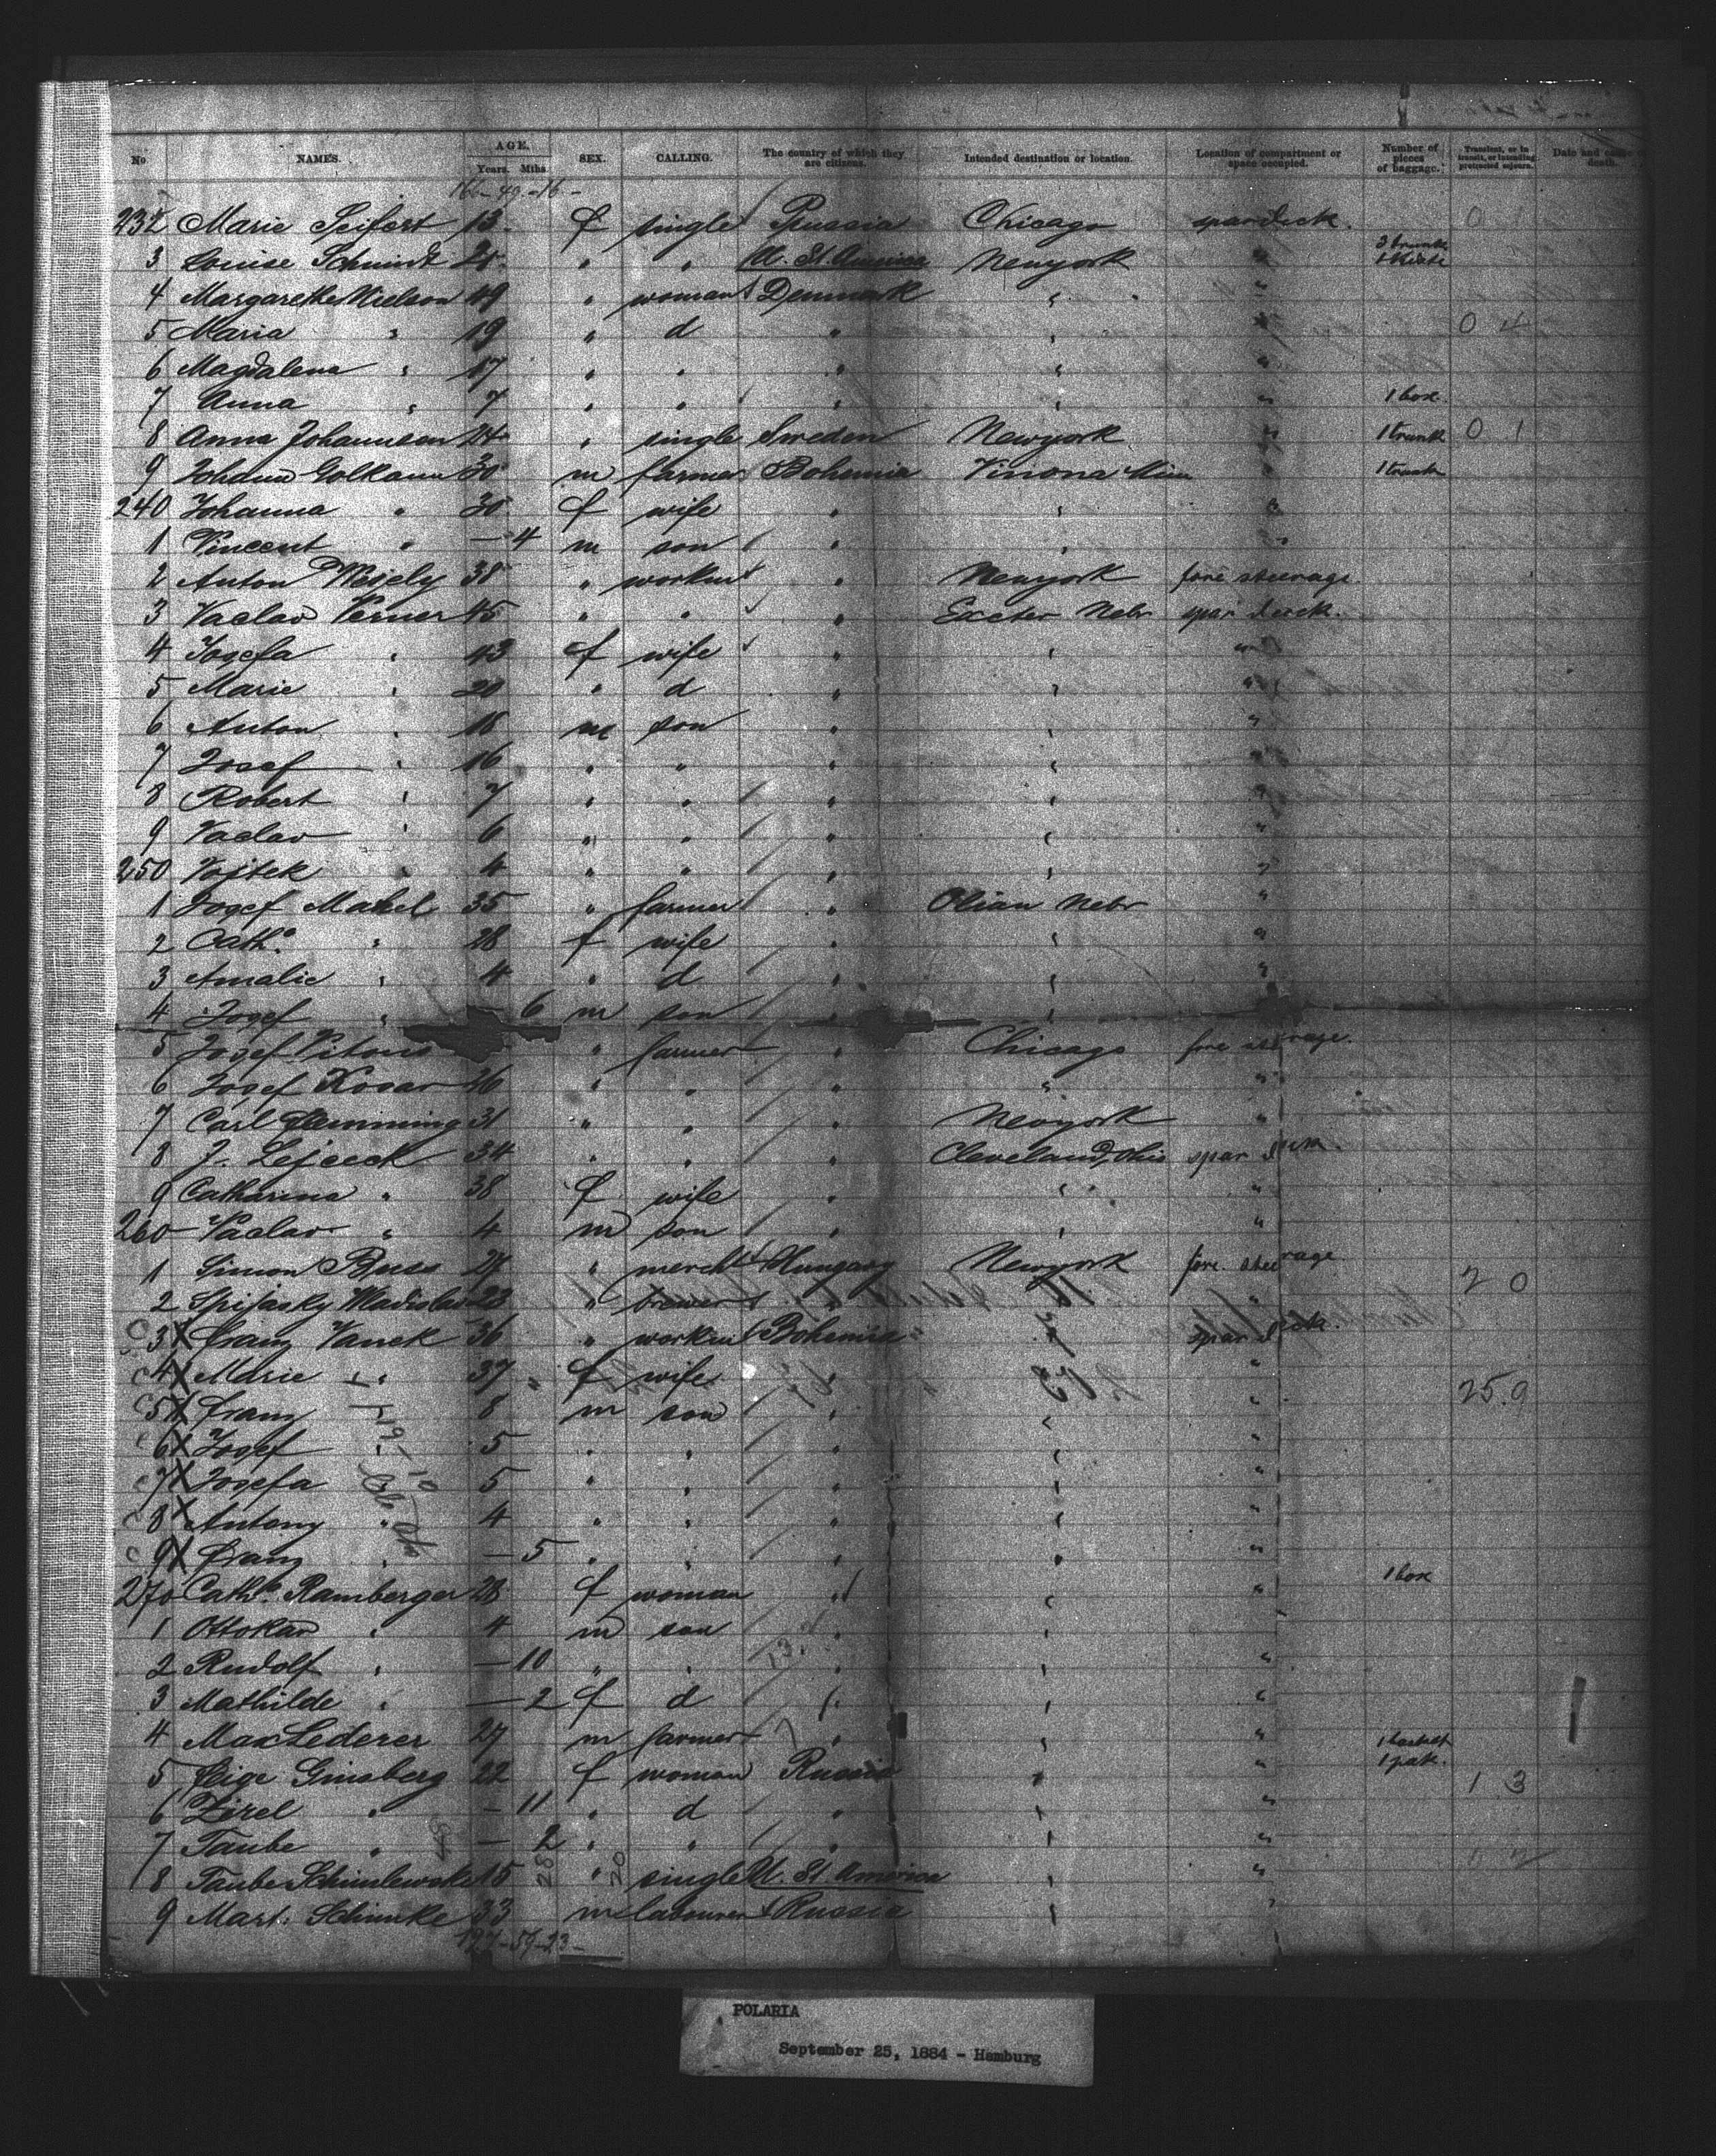 No NAMES. AGE. Years. Mths. SEX. CALLING. The country of which they are citizens. Intended destination or location. Location of compartment or space occupied. Number of pieces of baggage. Transient, or in transit, or intending protracted sojourn. Date and cause of death.
166-49-16-
232 Marie Seifert 13 f single Prussia Chicago spardeck. 0 1
3 Louise Schmidt " " U. St. America Newyork " 3 trunk
4 Margarethe Nielson 49 " woman Denmark " "
5 Maria " 19 " d " " " 0 4
6 Magdalena " 17 " " " " "
7 Anna " 7 " " " " " 1 box.
8 Anna Johannson 24 " single Sweden Newyork " 1 trunk 0 1
9 Johann Golkann 30 m farmer Bohemia Vinona Minn " 1 trunk
240 Johanna " 30 f wife " " "
1 Vincent " — 4 m son " " "
2 Anton Wesely 38 " workm " Newyork fore steerage.
3 Vaclav Verner 45 " " " Exeter Nebr spar deck.
4 Josefa " 43 f wife " " "
5 Marie " 20 " d " " "
6 Anton " 18 m son " " "
7 Josef " 16 " " " " "
8 Robert " 7 " " " " "
9 Vaclav " 6 " " " " "
250 Vojtek " 4 " " " " "
1 Josef Machel 35 " farmer " Nebr "
2 Cath.a " 28 f wife " " "
3 Amalie " 4 " d " " "
4 Josef " 6 m son " "
5 Josef Pitons " farmer " Chicago fore steerage.
6 Josef Kovar 46 " " " " "
7 Carl Flemming 31 " " " Newyork "
8 J. Lejceck 34 " " " Cleveland, Ohio spar deck.
9 Catharina " 38 f wife " " "
260 Vaclav " 4 m son " " "
1 Simon Buss 27 " mercht Hungary Newyork fore steerage
2 Spisasky Wladislav 23 " brewer " " " 2 0
3 X Franz Vanek 36 " workm Bohemia " spar deck.
4 X Marie " 37 " f wife " " 25.9
5 X Franz 8 m son " " "
6 X Josef " 5 " " " " "
7 X Josefa 5 " " " " "
8 X Antony " 4 " " " " "
9 X Franz " — 5 " " " " "
270 Cath.a Ramberger 28 f woman " " " 1 box
1 Ottokar " 4 m son " "
2 Rudolf " — 10 " " " " "
3 Mathilde " — 2 f d " " "
4 Max Lederer 27 m farmer " " " 1 basket
5 Feige Ginsberg 22 f woman Russia " " 1 pak. 1 3
6 Zirel " — 11 " d " " "
7 Taube " — 2 " " " " "
8 Taube Schimlewski 15 " single U. St. America " "
9 Mart. Schimke 33 m labourer Russia " "
197-59-23-
POLARIA
September 25, 1884 - Hamburg